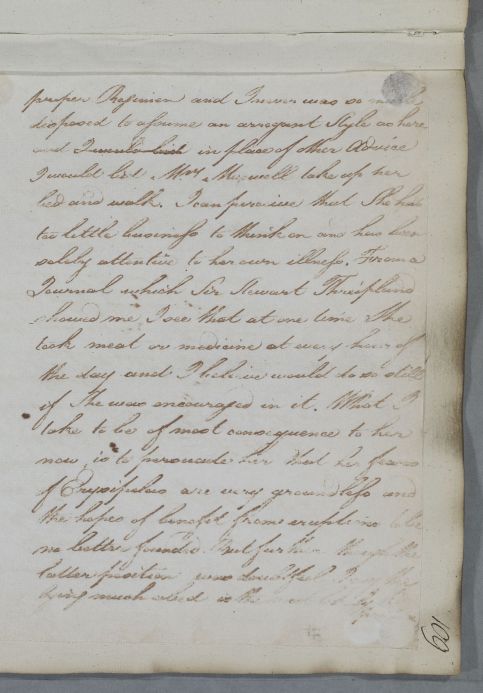 proper Regimen and I never was so much
disposed to assume an arrogant Style as here
and I would bid in place of other Advice
I would bid Mrs. Maxwell take up her
bed and walk. I can perceive that She has
too little business to think on and has been
solely attentive to her own illness. From a
Journal which Sir Stewart Threipland
showed me I see that at one time She
took meat or medicine at every hour of
the day and I believe would do so still
if She was encouraged in it. What I
take to be of most consequence to her
now is to persuade her that her fears
of Erysipelas are very groundless and
the hopes of benefit from eruptions to be
no better founded. But further though the
latter position was doubtful I
being much in the
109